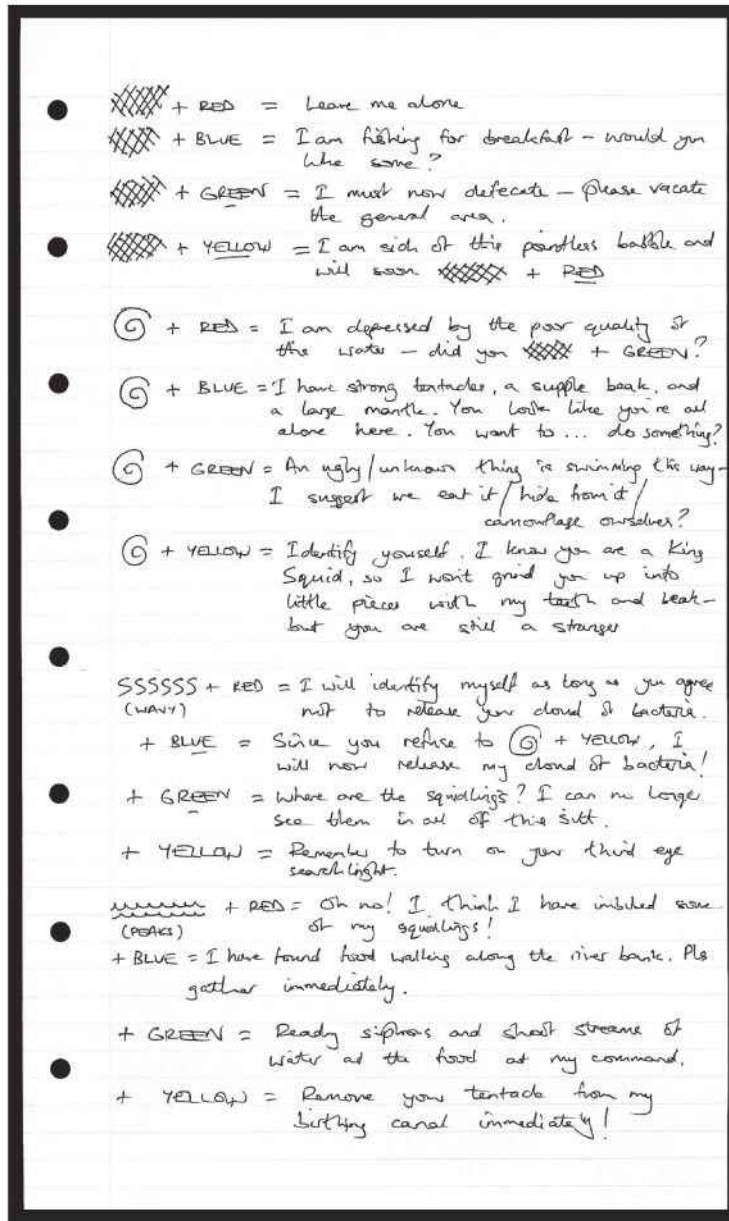 + RED = Leave me alone
+ BLUE = I am fishing for breakfast – would you
like some?
+ GREEN = I must now defecate – please vacate
the general area.
+ YELLOW = I am sick of this pointless babble and
will soon + RED
+ RED = I am depressed by the poor quality of
the water – did you + GREEN?
+ BLUE = I have strong tentacles, a supple beak, and
a large mantle. You look like you're all
alone here. You want to ... do something?
+ GREEN = An ugly/unknown thing is swimming this way –
I suggest we eat it/hide from it/
camouflage ourselves?
+ YELLOW = Identify yourself. I know you are a King
Squid, so I won't grind you up into
little pieces with my teeth and beak –
but you are still a stranger
SSSSSS + RED = I will identify myself as long as you agree
(WAVY) not to release your cloud of bacteria.
+ BLUE = Since you refuse to + YELLOW, I
will now release my cloud of bacteria!
+ GREEN = Where are the squidlings? I can no longer
see them in all of this silt.
+ YELLOW = Remember to turn on your third eye
searchlight.
+ RED = Oh no! I think I have imbibed some
(PEAKS) of my squidlings!
+ BLUE = I have found food walking along the river bank. Pls
gather immediately.
+ GREEN = Ready siphons and shoot streams of
water at the food at my command.
+ YELLOW = Remove your tentacle from my
birthing canal immediately!